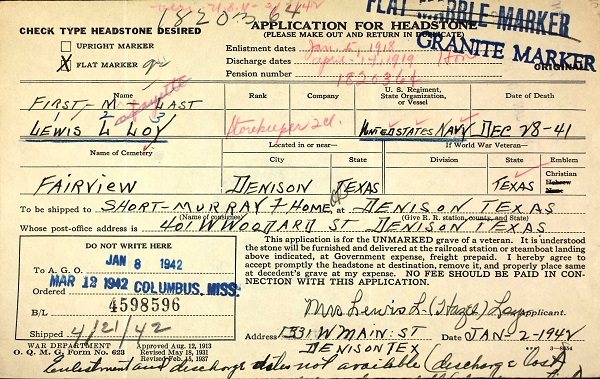 1820362
APPLICATION FOR HEADSTONE
(PLEASE MAKE OUT AND RETURN IN DUPLICATE)
FLAT MARBLE MARKER
GRANITE MARKER
ORIGINAL
CHECK TYPE HEADSTONE DESIRED
UPRIGHT MARKER
X FLAT MARKER gr
Enlistment dates Jan. 5, 1918
Discharge dates april. 14, 1919 Hon
Pension number 1820362
Name
Rank
Company
U. S. Regiment, State Organization, or Vessel
Date of Death
FIRST - M - LAST
Lafayette
LEWIS L LOY
2 3
Storekeeper 2cl.
UNITED STATES NAVY
DEC 28-41
Name of Cemetery
Located in or near—
If World War Veteran—
City
State
Division
State
Emblem
FAIRVIEW
DENISON
TEXAS
TEXAS
Christian
Hebrew
None
To be shipped to SHORT-MURRAY F HOME, at DENISON TEXAS
(Name of consignee)
(Give R. R. station, county, and State)
Whose post-office address is 401 W WOODARD ST DENISON TEXAS
DO NOT WRITE HERE
JAN 8 1942
To A. G. O.
MAR 12 1942 COLUMBUS, MISS.
Ordered
4598596
B/L
Shipped 4/21/42
This application is for the UNMARKED grave of a veteran. It is understood
the stone will be furnished and delivered at the railroad station or steamboat landing
above indicated, at Government expense, freight prepaid. I hereby agree to
accept promptly the headstone at destination, remove it, and properly place same
at decedent's grave at my expense. NO FEE SHOULD BE PAID IN
CONNECTION WITH THIS APPLICATION.
Mrs Lewis L (Hazel) Loy Applicant.
Address 1331 W MAIN: ST Date JAN-2-1942
DENISON TEX
WAR DEPARTMENT
O. Q. M. G. Form No. 623
Approved Aug. 12, 1913
Revised May 18, 1931
Revised Feb. 15, 1937
Enlistment and discharge dates not available (discharge lost)